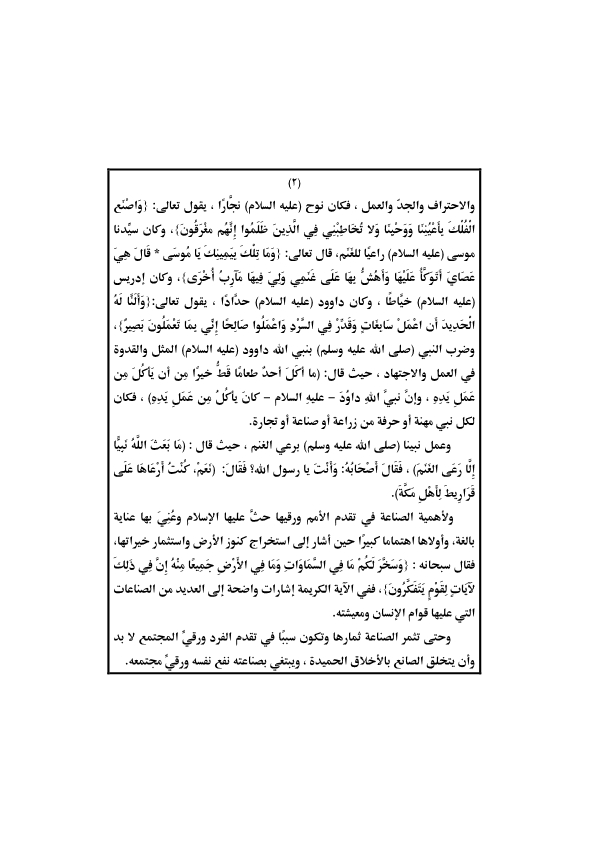 (٢)
والاحتراف والجدّ والعمل ، فكان نوح (عليه السلام) نجَّارًا ، يقول تعالى: {وَاصْنَعِ
الْفُلْكَ بِأَعْيُنِنَا وَوَحْيِنَا وَلا تُخَاطِبْنِي فِي الَّذِينَ ظَلَمُوا إِنَّهُم مغْرَقُونَ}، وكان سيِّدنا
موسى (عليه السلام) راعيًا للغَنَم، قال تعالى: {وَمَا تِلْكَ بِيَمِينِكَ يَا مُوسَى * قَالَ هِيَ
عَصَايَ أَتَوَكَّأُ عَلَيْهَا وَأَهُشُّ بِهَا عَلَى غَنَمِي وَلِيَ فِيهَا مَآرِبُ أُخْرَى}، وكان إدريس
(عليه السلام) خيَّاطًا ، وكان داوود (عليه السلام) حدَّادًا ، يقول تعالى:{وَأَلَنَّا لَهُ
الْحَدِيدَ أَن اعْمَلْ سَابِغَاتٍ وَقَدِّرْ فِي السَّرْدِ وَاعْمَلُوا صَالِحًا إِنِّي بِمَا تَعْمَلُونَ بَصِيرٌ}،
وضرب النبي (صلى الله عليه وسلم) بنبي الله داوود (عليه السلام) المثل والقدوة
في العمل والاجتهاد ، حيث قال: (ما أَكَلَ أحدٌ طعامًا قَطُّ خيرًا مِن أن يَأكُلَ مِن
عَمَلِ يَدِهِ ، وإنَّ نبيَّ اللهِ داوُدَ – عليهِ السلام – كانَ يأكُلُ مِن عَمَلِ يَدِهِ) ، فكان
لكل نبي مهنة أو حرفة من زراعة أو صناعة أو تجارة.
وعمل نبينا (صلى الله عليه وسلم) برعي الغنم ، حيث قال : (مَا بَعَثَ اللَّهُ نَبِيًّا
إِلَّا رَعَى الغَنَمَ) ، فَقَالَ أَصْحَابُهُ: وَأَنْتَ يا رسول الله؟ فَقَالَ: (نَعَمْ، كُنْتُ أَرْعَاهَا عَلَى
قَرَارِيطَ لِأَهْلِ مَكَّةَ).
ولأهمية الصناعة في تقدم الأمم ورقيها حثَّ عليها الإسلام وعُنِيَ بها عناية
بالغة، وأولاها اهتماما كبيرًا حين أشار إلى استخراج كنوز الأرض واستثمار خيراتها،
فقال سبحانه : {وَسَخَّرَ لَكُمْ مَا فِي السَّمَاوَاتِ وَمَا فِي الأَرْضِ جَمِيعًا مِنْهُ إِنَّ فِي ذَلِكَ
لآيَاتٍ لِقَوْمٍ يَتَفَكَّرُونَ}، ففي الآية الكريمة إشارات واضحة إلى العديد من الصناعات
التي عليها قوام الإنسان ومعيشته.
وحتى تثمر الصناعة ثمارها وتكون سببًا في تقدم الفرد ورقيِّ المجتمع لا بد
وأن يتخلق الصانع بالأخلاق الحميدة ، ويبتغي بصناعته نفع نفسه ورقيِّ مجتمعه.